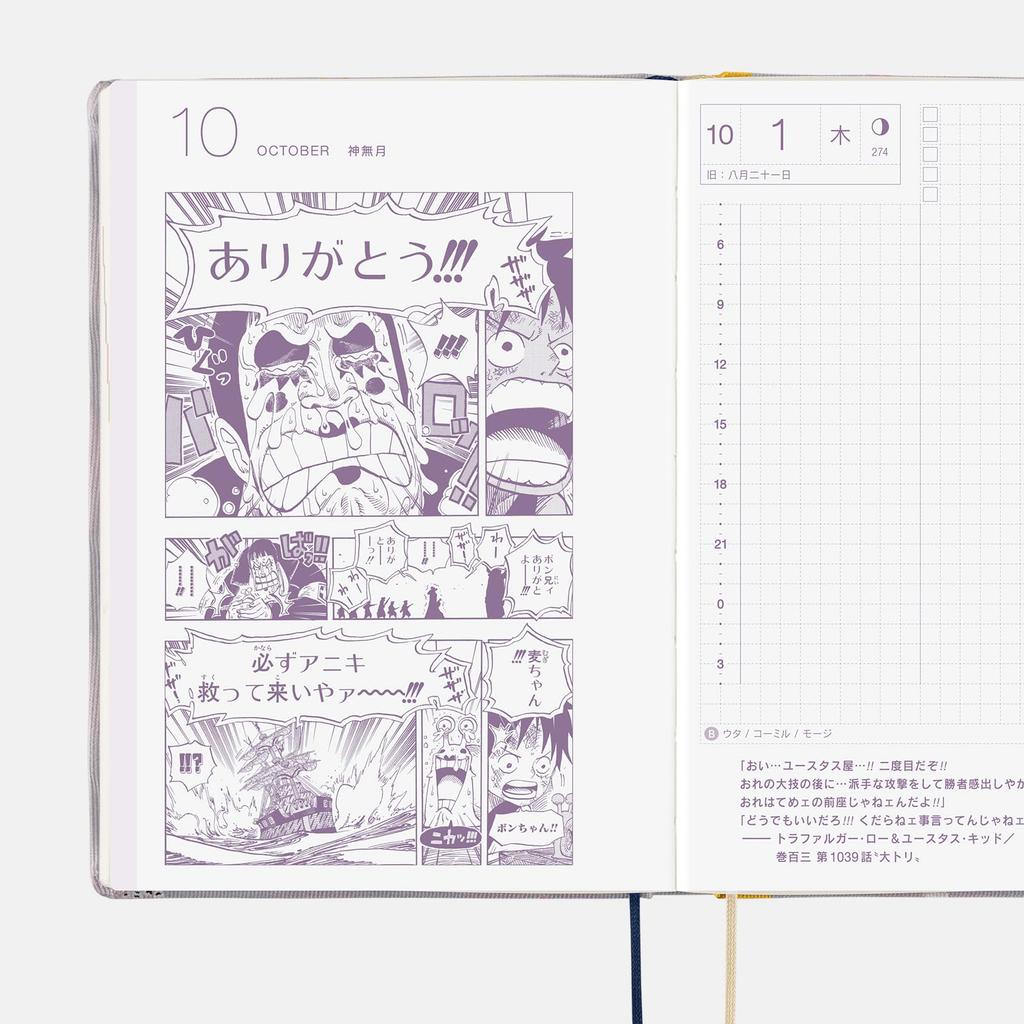 10 OCTOBER 神無月
ありがとう!!!
ギギギ
ひぐっ
!!!
ドロッ!!
がばっ!!
ボン兄ィ
ありがと
よー!!!
わー
ありが
とーーっ!!
わー
わー
必ずアニキ
救って来いやァ〜〜〜!!!
!!!麦ちゃん
!!?
ニカッ!!!
ボンちゃん!!
10 1 木 274
旧：八月二十一日
6
9
12
15
18
21
0
3
B ウタ / コーミル / モージ
「おい…ユースタス屋…!! 二度目だぞ!!
おれの大技の後に…派手な攻撃をして勝者感出しやが
おれはてめェの前座じゃねェんだよ!!」
「どうでもいいだろ!!! くだらねェ事言ってんじゃねェ
── トラファルガー・ロー＆ユースタス・キッド／
巻百三 第1039話〝大トリ〟